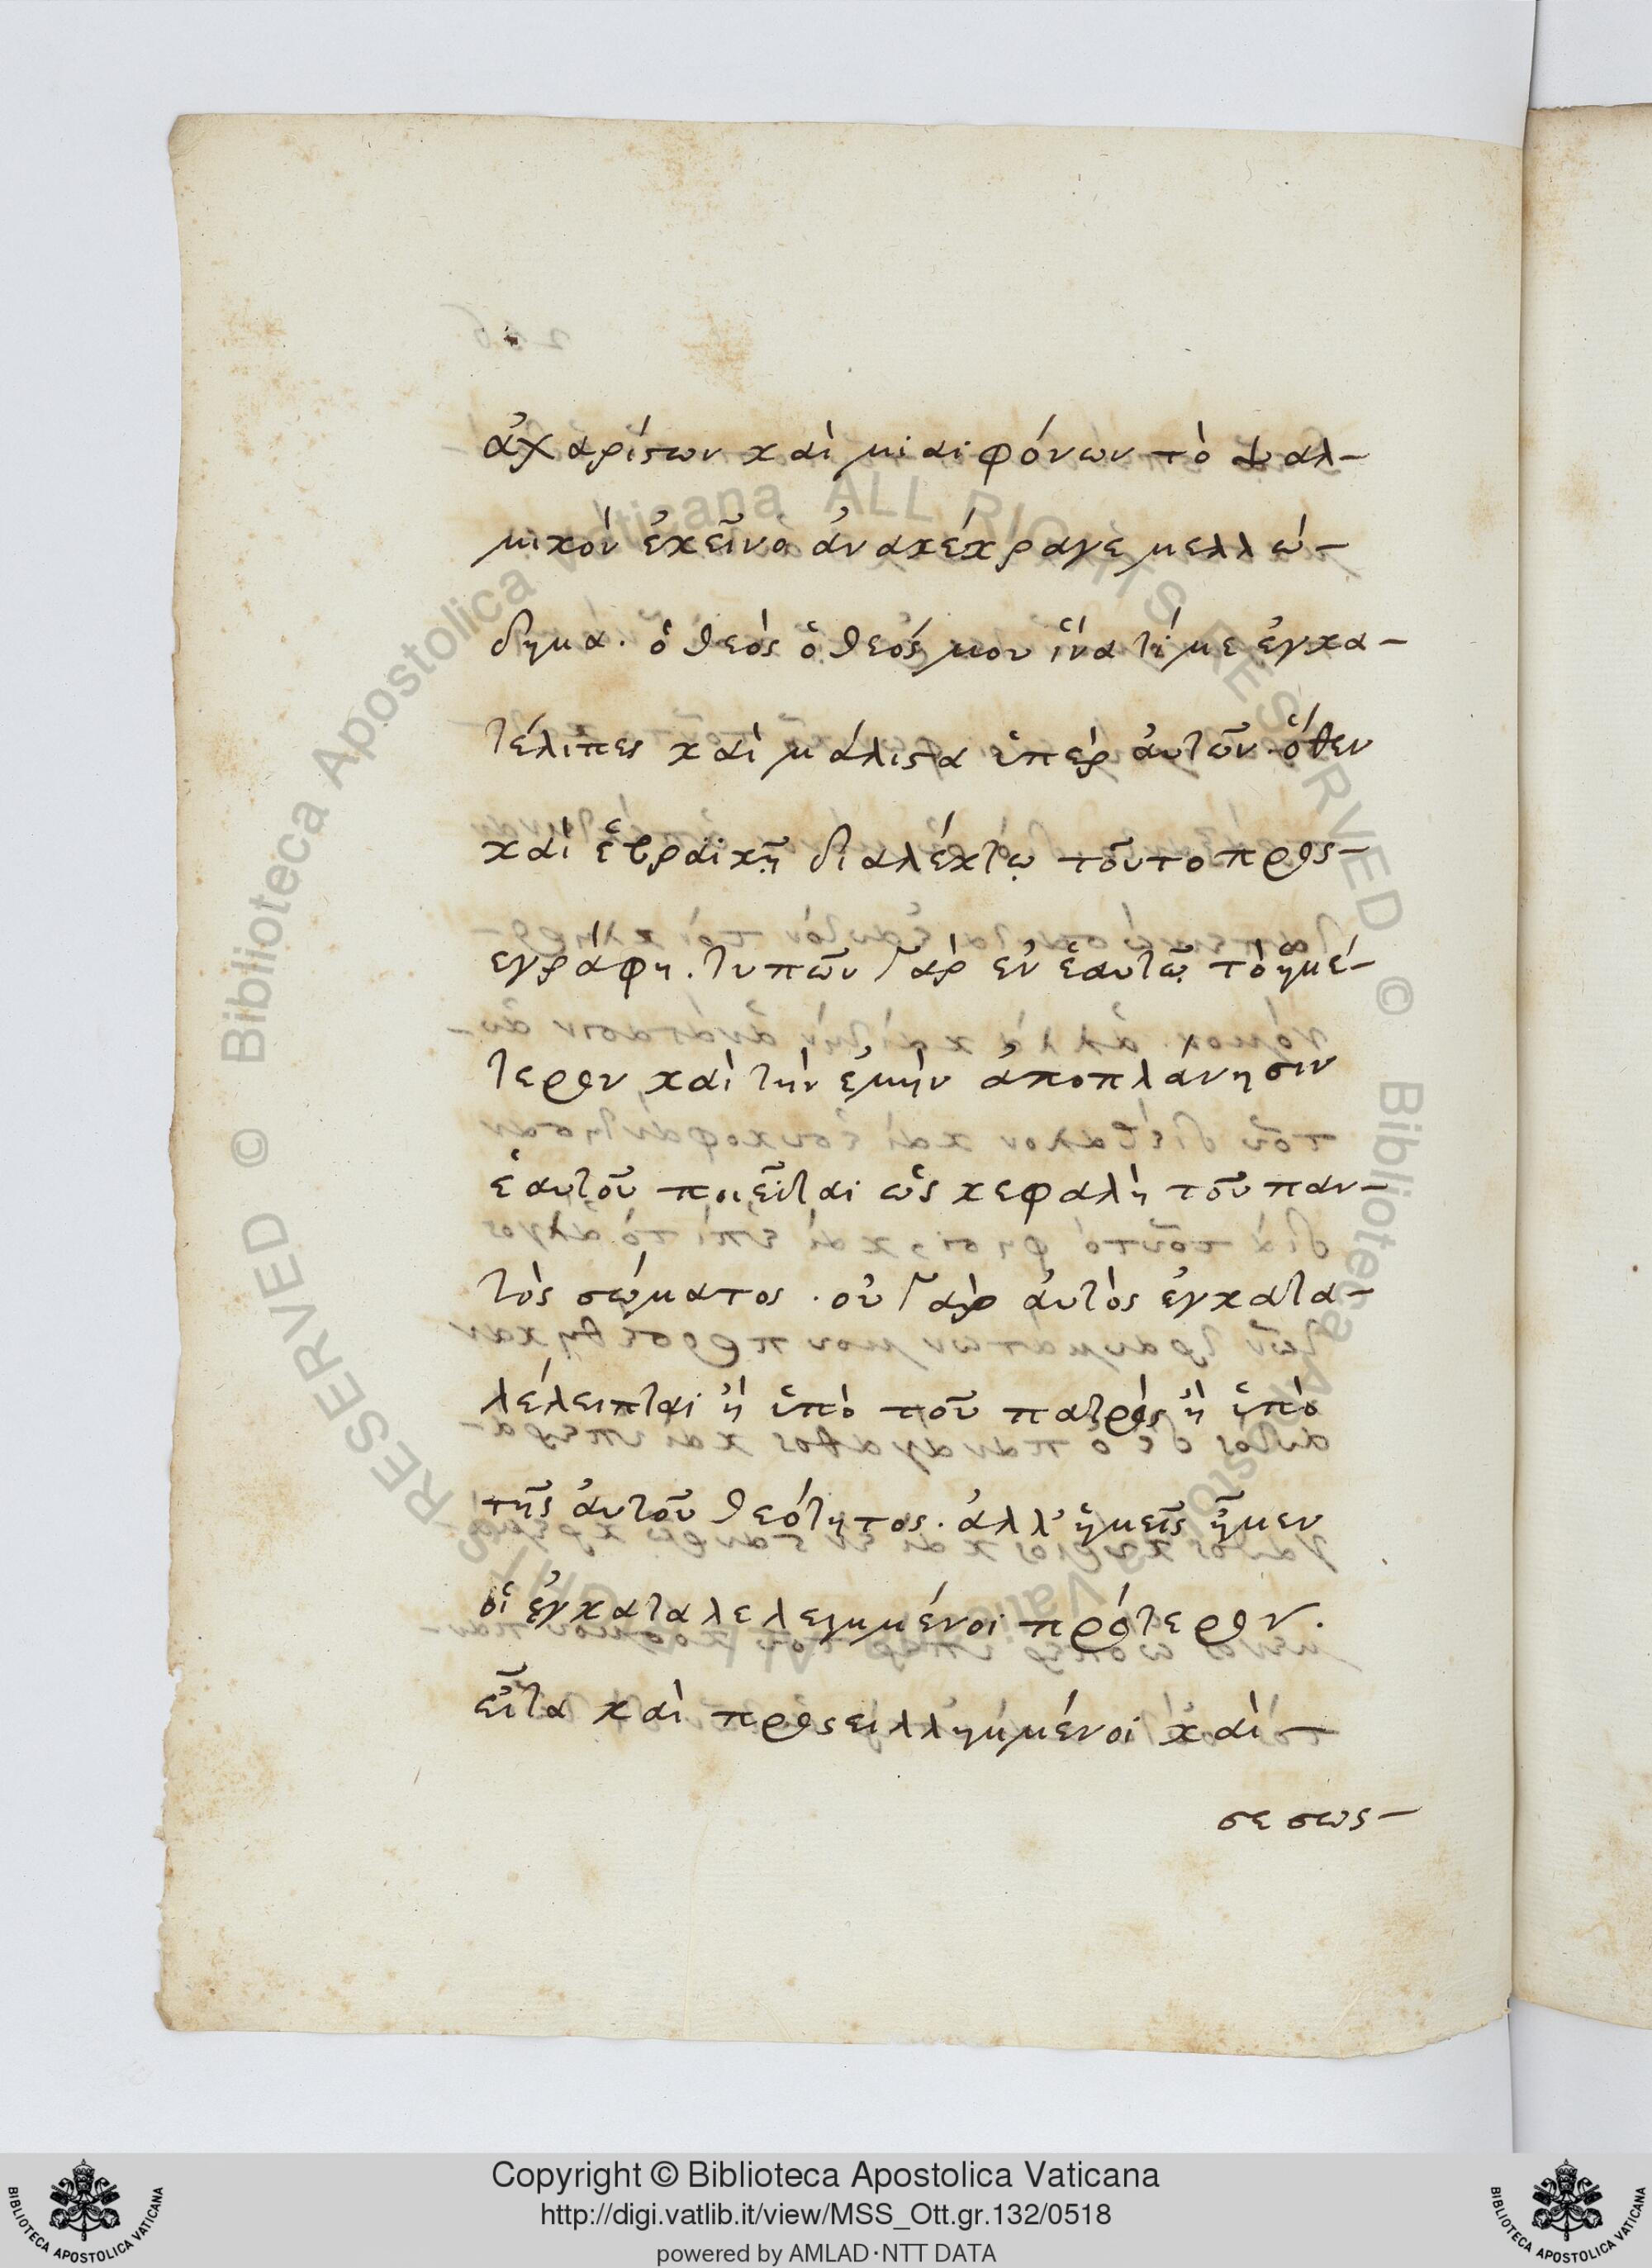 ἀχαρίστων καὶ μιαιφόνων τὸ ψαλ-
μικὸν ἐκεῖνο ἀνακέκραγε μελλώ-
δημα. ὁ θεὸς ὁ θεός μου ἵνα τί με ἐγκα-
τέλιπες καὶ μάλιστα ὑπὲρ ἀυτῶν ὅθεν
καὶ ἑβραϊκῇ διαλέκτῳ τοῦτο προς-
εγράφη. τυπῶν γὰρ ἐν ἑαυτῷ τὸ ἡμέ-
τερον καὶ τὴν ἐμὴν ἀποπλάνησιν
ἑαυτοῦ ποιεῖται ὡς κεφαλὴ τοῦ παν-
τὸς σώματος. οὐ γὰρ ἀυτὸς ἐγκατα-
λέλειπται ἢ ὑπὸ τοῦ πατρὸς ἢ ὑπὸ
τῆς ἀυτοῦ θεότητος. ἀλλ' ἡμεῖς ἦμεν
οἱ ἐγκαταλελειμμένοι πρότερον.
εἶτα καὶ προςειλλημμένοι καὶ -
σεσως-
Biblioteca Apostolica Vaticana ALL RIGHTS RESERVED © Biblioteca Apostolica Vaticana ALL RIGHTS RESERVED ©
Copyright © Biblioteca Apostolica Vaticana
http://digi.vatlib.it/view/MSS_Ott.gr.132/0518
powered by AMLAD·NTT DATA
BIBLIOTECA APOSTOLICA VATICANA
BIBLIOTECA APOSTOLICA VATICANA